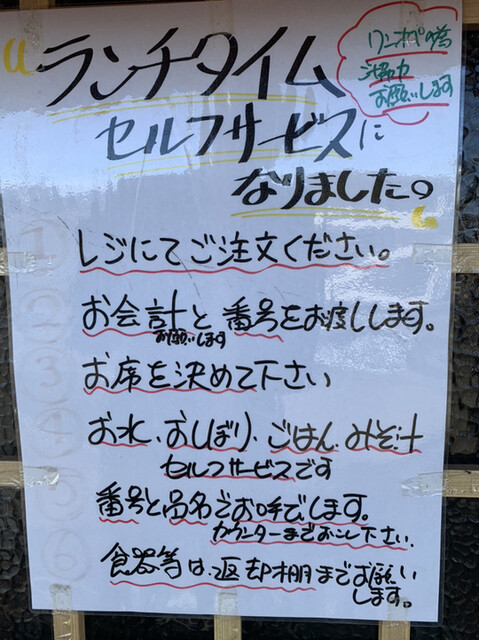 ランチタイム
セルフサービスに
なりました。
ワンオペの為
ご協力
お願いします
① レジにてご注文ください。
② お会計と番号をお渡しします。
お願いします
③ お席を決めて下さい
④ お水、おしぼり、ごはん、みそ汁
セルフサービスです
⑤ 番号と品名でお呼びします。
カウンターまでおこし下さい。
⑥ 食器等は、返却棚までお願い
します。